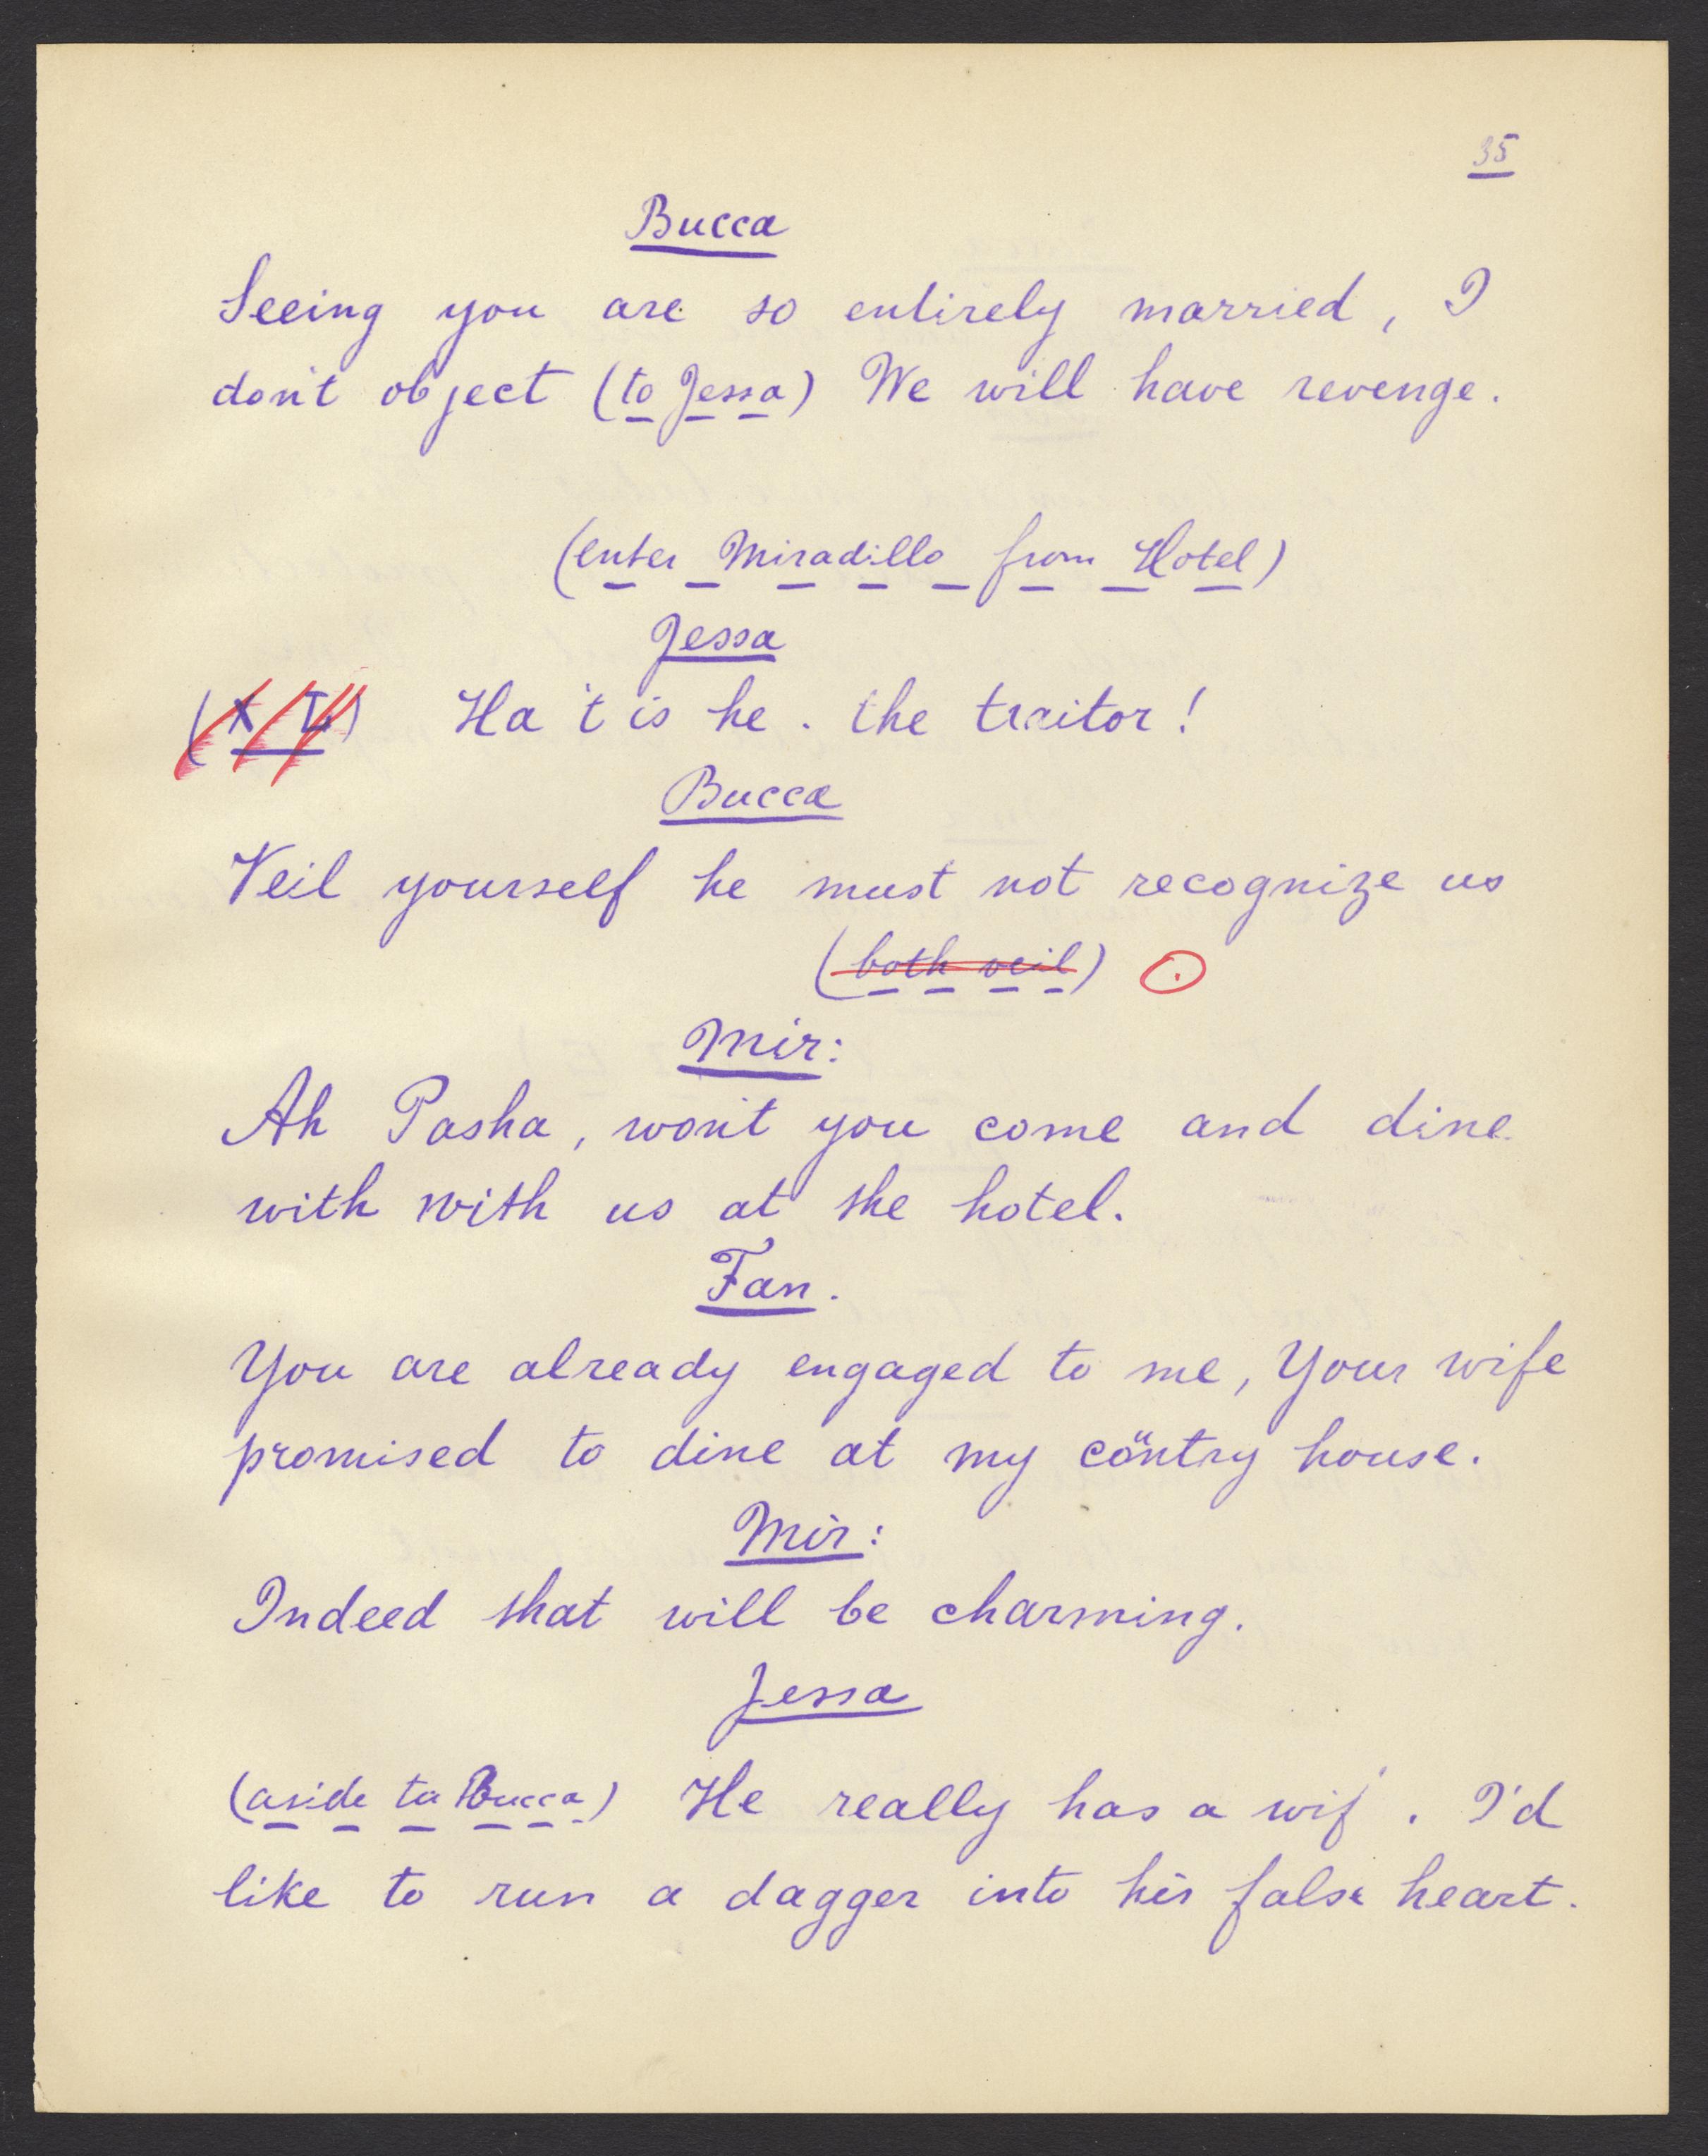 35
Bucca
Seeing you are so entirely married, I
don't object (to Jessa) We will have revenge.
(enter Miradillo from Hotel)
Jessa
(X L) Ha 't is he. the traitor!
Bucca
Veil yourself he must not recognize us
(both veil)
Mir:
Ah Pasha, won't you come and dine
with with us at the hotel.
Fan.
You are already engaged to me, Your wife
promised to dine at my cöntry house.
Mir:
Indeed that will be charming.
Jessa
(aside to Bucca) He really has a wif'. I'd
like to run a dagger into his false heart.